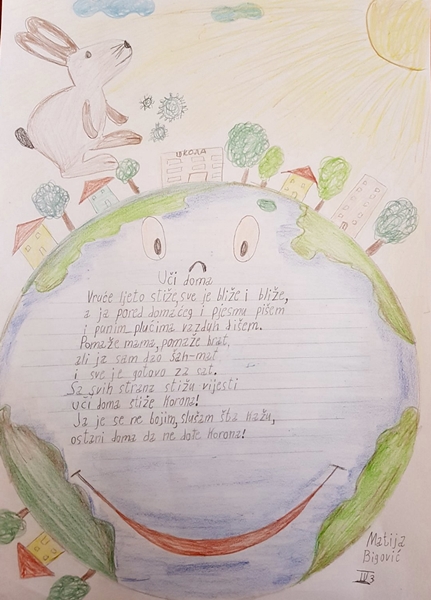 ШКОЛА
Uči doma
Vruće ljeto stiže, sve je bliže i bliže,
a ja pored domaćeg i pjesmu pišem
i punim plućima vazduh dišem.
Pomaže mama, pomaže brat,
ali ja sam dao šah-mat
i sve je gotovo za sat.
Sa svih strana stižu vijesti
uči doma stiže Korona!
Ja je se ne bojim, slušam šta kažu,
ostani doma da ne dođe Korona!
Matija
Bigović
IV3